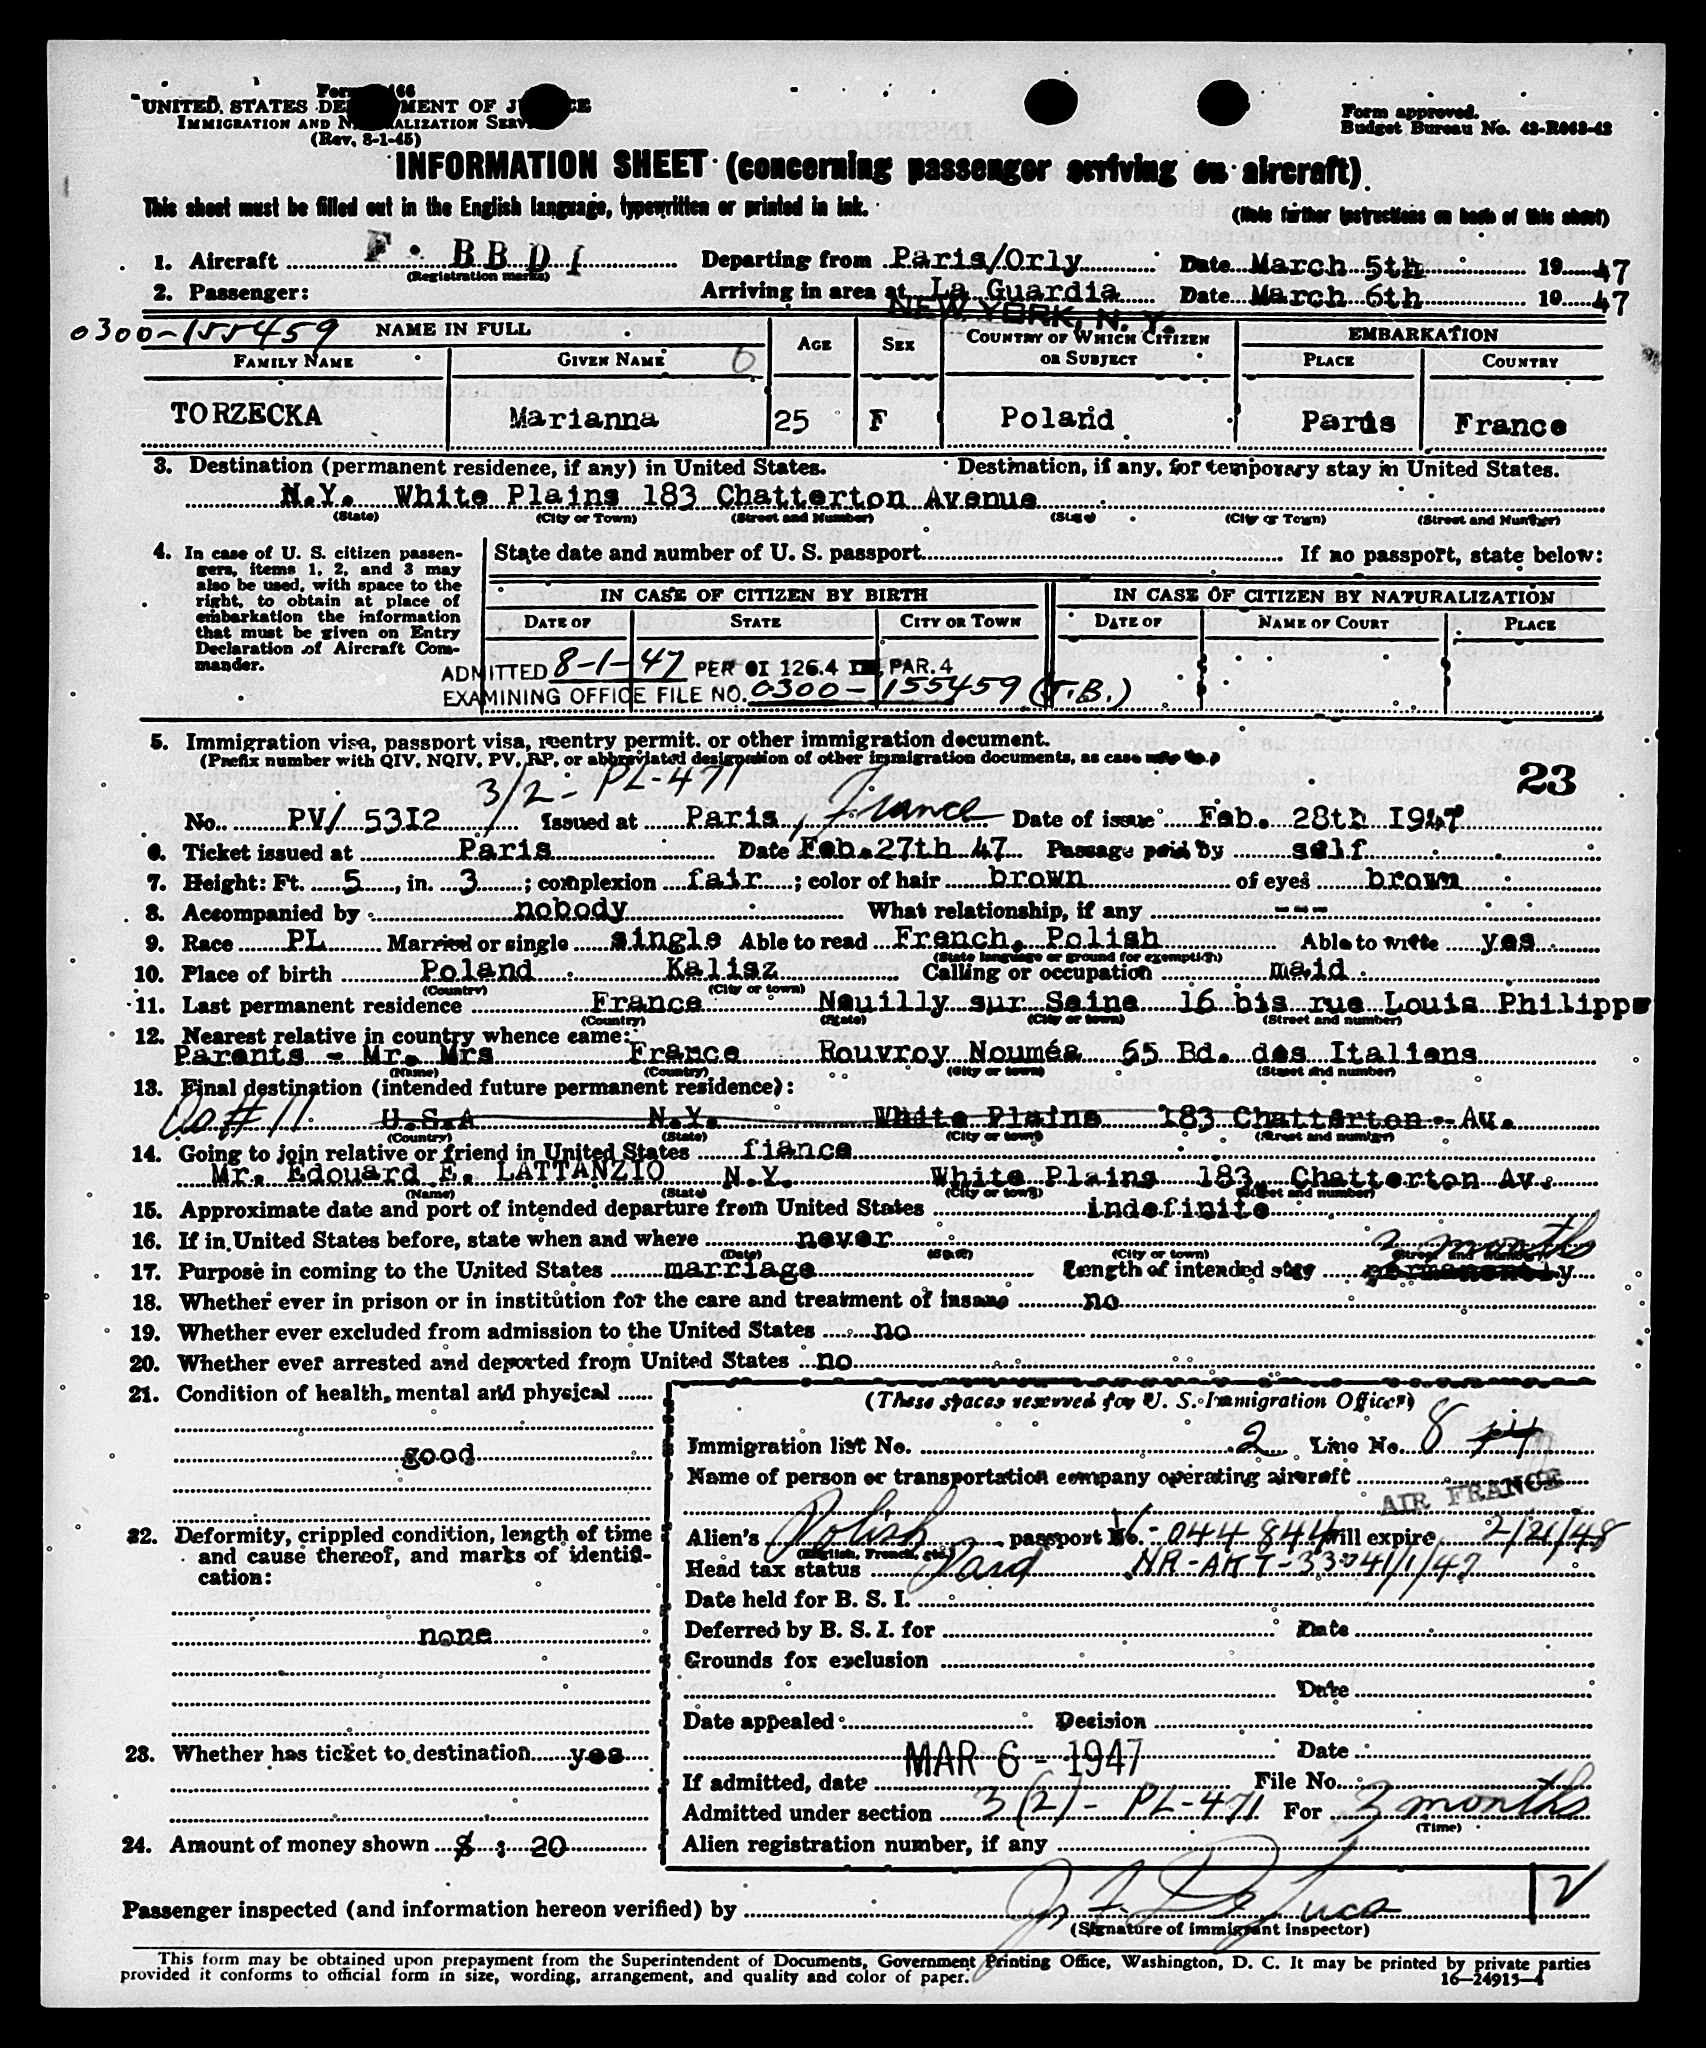 UNITED STATES DE MENT OF J CE
IMMIGRATION AND N ALIZATION SERV
(Rev. 8-1-45)
Form approved.
Budget Bureau No. 43-R063-42
INFORMATION SHEET (concerning passenger arriving on aircraft)
This sheet must be filled out in the English language, typewritten or printed in ink.
(Note further instructions on back of this sheet)
1. Aircraft F. BBDI Departing from Paris/Orly Date March 5th 1947
(Registration marks)
2. Passenger: Arriving in area at La Guardia Date March 6th 1947
NEW YORK, N. Y.
0300-155459 NAME IN FULL AGE SEX COUNTRY OF WHICH CITIZEN OR SUBJECT EMBARKATION
FAMILY NAME GIVEN NAME PLACE COUNTRY
TORZECKA Marianna 25 F Poland Paris France
3. Destination (permanent residence, if any) in United States. Destination, if any, for temporary stay in United States.
N.Y. White Plains 183 Chatterton Avenue
(State) (City or Town) (Street and Number) (State) (City or Town) (Street and Number)
4. In case of U. S. citizen passengers, items 1, 2, and 3 may also be used, with space to the right, to obtain at place of embarkation the information that must be given on Entry Declaration of Aircraft Commander.
State date and number of U. S. passport If no passport, state below:
IN CASE OF CITIZEN BY BIRTH IN CASE OF CITIZEN BY NATURALIZATION
DATE OF STATE CITY OR TOWN DATE OF NAME OF COURT PLACE
ADMITTED 8-1-47 PER OI 126.4 PAR. 4
EXAMINING OFFICE FILE NO. 0300-155459 (J.B.)
5. Immigration visa, passport visa, reentry permit, or other immigration document.
(Prefix number with QIV, NQIV, PV, RP, or abbreviated designation of other immigration documents, as case may be.)
3/2 - PL-471 23
No. PV/ 53I2 Issued at Paris, France Date of issue Feb. 28th I947
6. Ticket issued at Paris Date Feb.27th 47 Passage paid by self
7. Height: Ft. 5, in. 3; complexion fair; color of hair brown of eyes brown
8. Accompanied by nobody What relationship, if any ---
9. Race PL Married or single single Able to read French, Polish Able to write yes
(State language or ground for exemption)
10. Place of birth Poland Kalisz Calling or occupation maid
(Country) (City or town)
11. Last permanent residence France Neuilly sur Seine 16 bis rue Louis Philippe
(Country) (State) (City or town) (Street and number)
12. Nearest relative in country whence came:
Parents - Mr. Mrs France Rouvroy Nouméa 55 Bd. des Italiens
(Name) (Country) (City or town) (Street and number)
13. Final destination (intended future permanent residence):
Do # 11 U.S.A N.Y. White Plains 183 Chatterton - Av.
(Country) (State) (City or town) (Street and number)
14. Going to join relative or friend in United States fiance
Mr. Edouard E. LATTANZIO N.Y. White Plains 183, Chatterton Av.
(Name) (State) (City or town) (Street and number)
15. Approximate date and port of intended departure from United States indefinite
16. If in United States before, state when and where never
(Date) (State) (City or town) (Street and number)
3 months
17. Purpose in coming to the United States marriage Length of intended stay permanently
18. Whether ever in prison or in institution for the care and treatment of insane no
19. Whether ever excluded from admission to the United States no
20. Whether ever arrested and deported from United States no
21. Condition of health, mental and physical
good
22. Deformity, crippled condition, length of time and cause thereof, and marks of identification:
none
23. Whether has ticket to destination yes
24. Amount of money shown $ : 20
(These spaces reserved for U. S. Immigration Officer)
Immigration list No. 2 Line No. 8 14
Name of person or transportation company operating aircraft
AIR FRANCE
Alien's Polish passport No. 044844 Will expire 2/21/48
(English, French, etc.)
Head tax status Paid
Date held for B. S. I.
Deferred by B. S. I. for Date
Grounds for exclusion
Date
Date appealed Decision
Date
If admitted, date MAR 6 - 1947 File No.
Admitted under section 3(2)- PL-471 For 3 months
(Time)
Alien registration number, if any
Passenger inspected (and information hereon verified) by J. F. De Luca
(Signature of immigrant inspector)
This form may be obtained upon prepayment from the Superintendent of Documents, Government Printing Office, Washington, D. C. It may be printed by private parties
provided it conforms to official form in size, wording, arrangement, and quality and color of paper. 16—24915-4